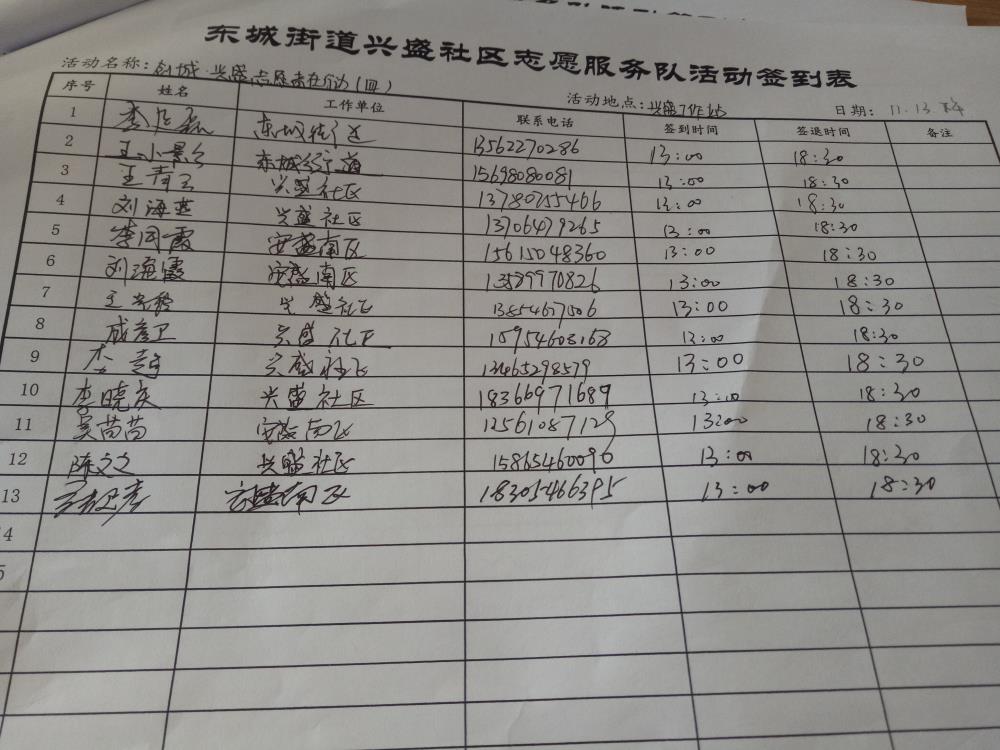 东城街道兴盛社区志愿服务队活动签到表
活动名称：创城·兴盛志愿未在行动（四） 活动地点：兴盛工作站 日期：11.13
序号 姓名 工作单位 联系电话 签到时间 签退时间 备注
1 东城街道 13562270286 13:00 18:30
2 王小景 东城街道 15698080081 13:00 18:30
3 王青云 兴盛社区 13780755466 13:00 18:30
4 刘海燕 兴盛社区 13706479265 13:00 18:30
5 李同霞 安盛南区 15615048360 13:00 18:30
6 刘海霞 安盛南区 13589970826 13:00 18:30
7 兴盛社区 13854677006 13:00 18:30
8 成彦卫 兴盛社区 15954608168 13:00 18:30
9 兴盛社区 13465298579 13:00 18:30
10 李晓庆 兴盛社区 18366971689 13:00 18:30
11 吴苗苗 安盛南区 12561087129 13:00 18:30
12 陈文文 兴盛社区 15865460096 13:00 18:30
13 安盛南区 18305466395 13:00 18:30
4
5